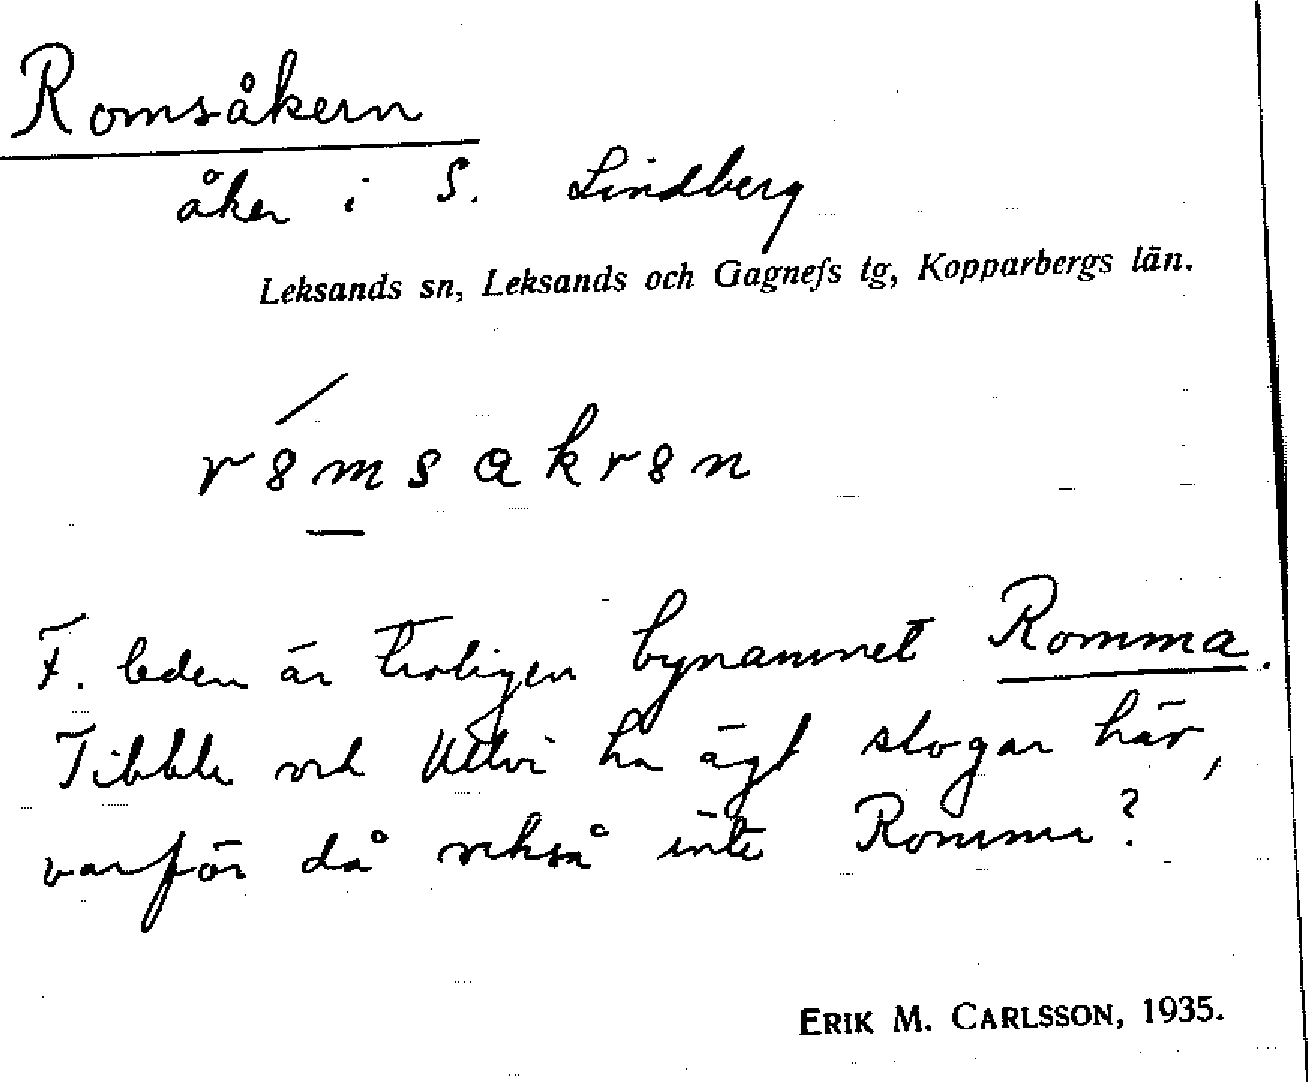 Romsåkern
åker i S. Lindberg
Leksands sn, Leksands och Gagnefs tg, Kopparbergs län.
r8msakr8n
F. leden är troligen bynamnet Romma.
Tibble och Ullvi ha ägt slogar här,
varför då också inte Romma?
ERIK M. CARLSSON, 1935.